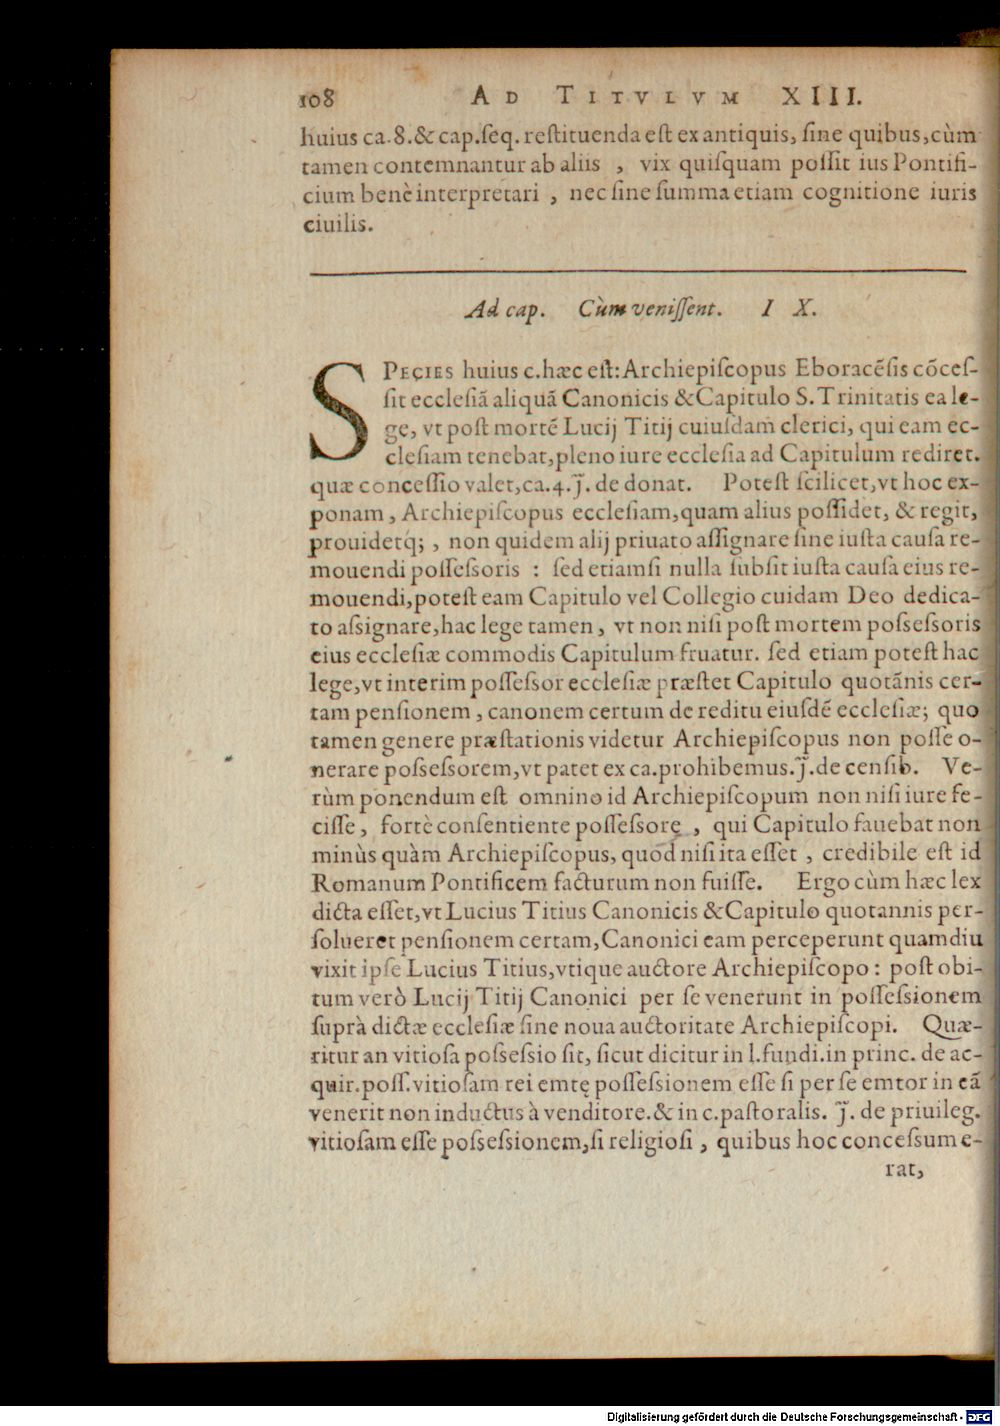 108 AD TITVLVM XIII.
huius ca.8.& cap.ſeq. reſtituenda eſt ex antiquis, ſine quibus, cùm
tamen contemnantur ab aliis , vix quiſquam poſſit ius Pontifi-
cium benè interpretari , nec ſine ſumma etiam cognitione iuris
ciuilis.
Ad cap. Cùm veniſſent. I X.
SPECIES huius c.hæc eſt: Archiepiſcopus Eboracẽſis cõceſ-
ſit eccleſiã aliquã Canonicis & Capitulo S. Trinitatis ea le-
ge, vt poſt mortẽ Lucij Titij cuiuſdam clerici, qui eam ec-
cleſiam tenebat, pleno iure eccleſia ad Capitulum rediret.
quæ conceſſio valet, ca.4. j̃. de donat. Poteſt ſcilicet, vt hoc ex-
ponam , Archiepiſcopus eccleſiam, quam alius poſſidet, & regit,
prouidetq́; , non quidem alij priuato aſſignare ſine iuſta cauſa re-
mouendi poſſeſſoris : ſed etiamſi nulla ſubſit iuſta cauſa eius re-
mouendi, poteſt eam Capitulo vel Collegio cuidam Deo dedica-
to aſsignare, hac lege tamen , vt non niſi poſt mortem poſseſsoris
eius eccleſiæ commodis Capitulum fruatur. ſed etiam poteſt hac
lege, vt interim poſſeſsor eccleſiæ præſtet Capitulo quotãnis cer-
tam penſionem , canonem certum de reditu eiuſdẽ eccleſiæ; quo
tamen genere præſtationis videtur Archiepiſcopus non poſſe o-
nerare poſseſsorem, vt patet ex ca.prohibemus. j̃. de cenſib. Ve-
rùm ponendum eſt omnino id Archiepiſcopum non niſi iure fe-
ciſſe , fortè conſentiente poſſeſsore , qui Capitulo fauebat non
minùs quàm Archiepiſcopus, quod niſi ita eſſet , credibile eſt id
Romanum Pontificem facturum non fuiſſe. Ergo cùm hæc lex
dicta eſſet, vt Lucius Titius Canonicis & Capitulo quotannis per-
ſolueret penſionem certam, Canonici eam perceperunt quamdiu
vixit ipſe Lucius Titius, vtique auctore Archiepiſcopo : poſt obi-
tum verò Lucij Titij Canonici per ſe venerunt in poſſeſsionem
ſuprà dictæ eccleſiæ ſine noua auctoritate Archiepiſcopi. Quæ-
ritur an vitioſa poſseſsio ſit, ſicut dicitur in l.fundi.in princ. de ac-
quir.poſſ. vitioſam rei emtę poſſeſsionem eſſe ſi per ſe emtor in eã
venerit non inductus à venditore. & in c.paſtoralis. j̃. de priuileg.
vitioſam eſſe poſseſsionem, ſi religioſi , quibus hoc conceſsum e-
rat,
Digitalisierung gefördert durch die Deutsche Forschungsgemeinschaft - DFG